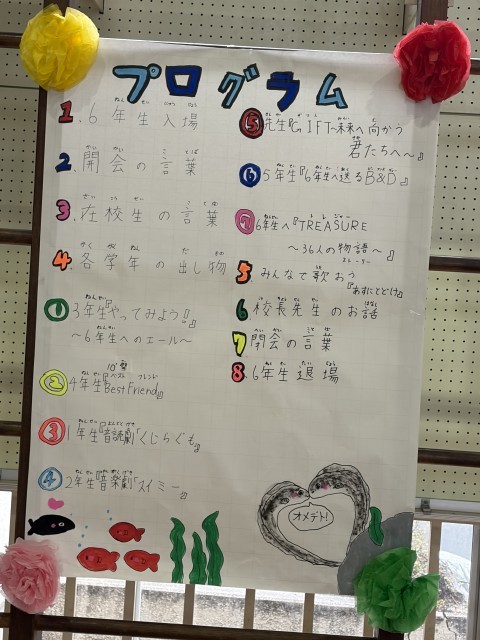 プログラム
1. 6年生入場
2. 開会の言葉
3. 在校生の言葉
4. 各学年の出し物
① 3年生『やってみよう!』
～6年生へのエール～
② 4年生『Best Friend』
③ 1年生『音読劇「くじらぐも」』
④ 2年生『音楽劇「スイミー」』
⑤ 先生『GIFT～未来へ向かう
君たちへ～』
⑥ 5年生『6年生へ送るB&D』
⑦ 6年生へ『TREASURE
～36人の物語～』
5. みんなで歌おう
『あすにとどけ』
6 校長先生のお話
7 閉会の言葉
8. 6年生退場
オメデト!